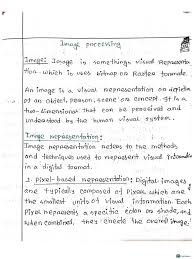 Image processing
Image: Image is somethings visual Representa
tion which is uses bitmap on Raster formate.
An image is a visual representation or depiction
of an object, person, scene or concept. It is a
two-dimensional that can be perceived and
understood by the human visual system.
Image Representation:
Image representation refers to the methods
and techniques used to represent visual Information
in a digital format.
1. pixel-based representation: Digital images
are typically composed of Pixels which are
the smallest units of visual information Each
Pixel represents a specific color or shade, and
when combined, they create the overall image.